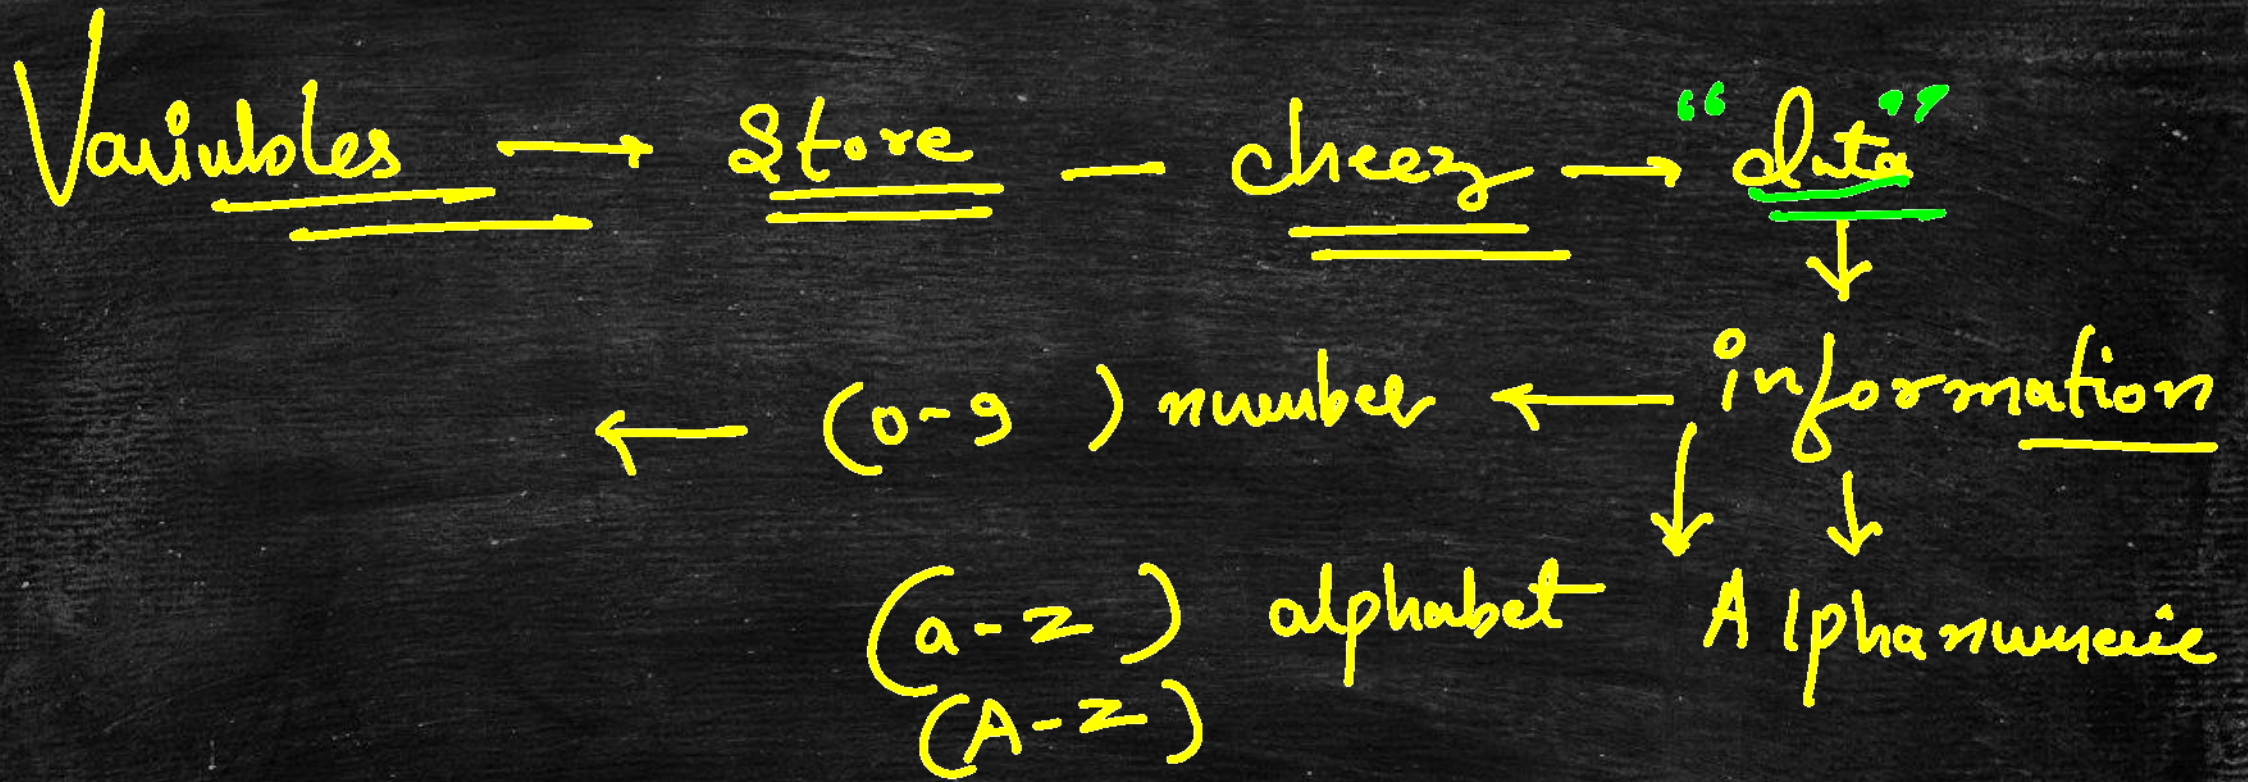 Variables → Store — cheez → “data”
↓
← (0-9) number ← information
↓ ↓
(a-z) alphabet Alphanumeric
(A-Z)